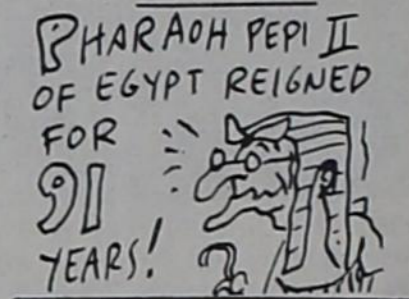 PHARAOH PEPI II
OF EGYPT REIGNED
FOR
91
YEARS!